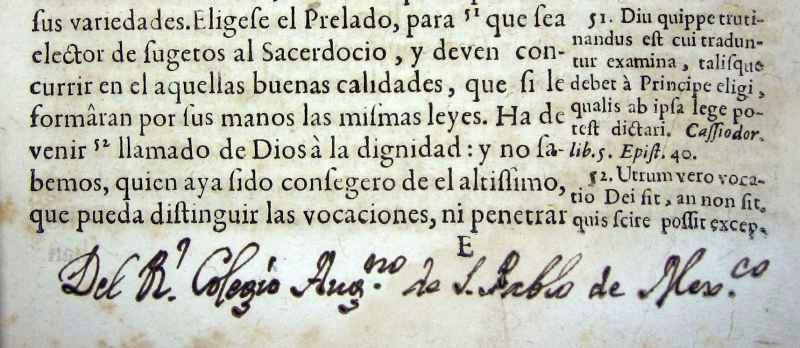 sus variedades. Eligese el Prelado, para 51 que sea
elector de sugetos al Sacerdocio, y deven con-
currir en el aquellas buenas calidades, que si le
formâran por sus manos las mismas leyes. Ha de
venir 52 llamado de Dios à la dignidad: y no sa-
bemos, quien aya sido consegero de el altissimo,
que pueda distinguir las vocaciones, ni penetrar
E
51. Diu quippe truti-
nandus est cui tradun-
tur examina, talisque
debet à Principe eligi,
qualis ab ipsa lege po-
test dictari. Cassiodor.
lib. 5. Epist. 40.
52. Utrum vero voca-
tio Dei sit, an non sit,
quis scire possit excep-
Del R.l Colegio Aug.no de S. Pablo de Mex.co